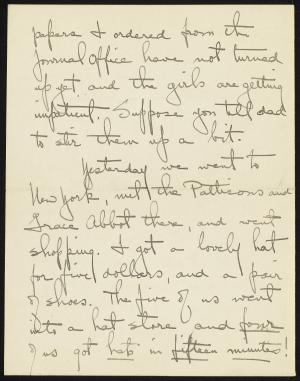 papers I ordered from the
Journal Office have not turned
up yet and the girls are getting
impatient. Suppose you tell dad
to stir them up a bit.
Yesterday we went to
New York, met the Pattisons and
Grace Abbot there, and went
shopping. I got a lovely hat
for five dollars, and a pair
of shoes. The five of us went
into a hat store and four
of us got hats in fifteen minutes!